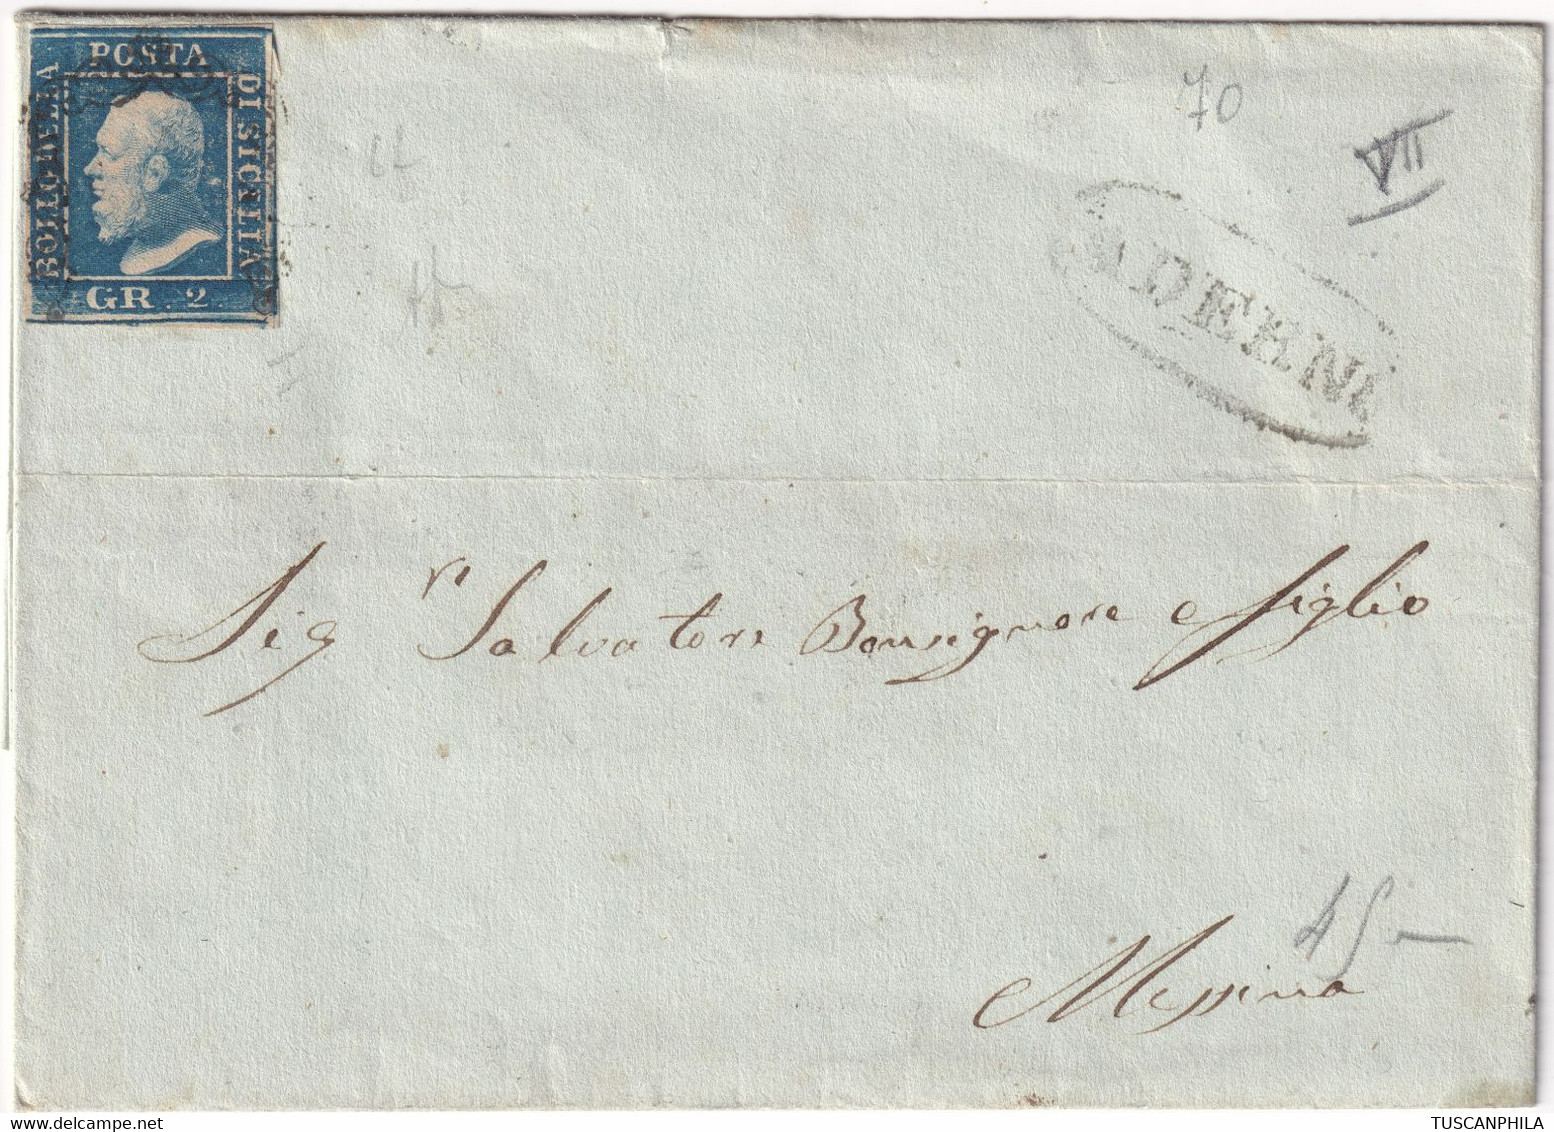 POSTA
BOLLO DELLA
DI SICILIA
GR. 2.
70
VII
ADERN
Sig.ri Salvatore Bonsignore e figlio
45-
Messina
TUSCANPHILA